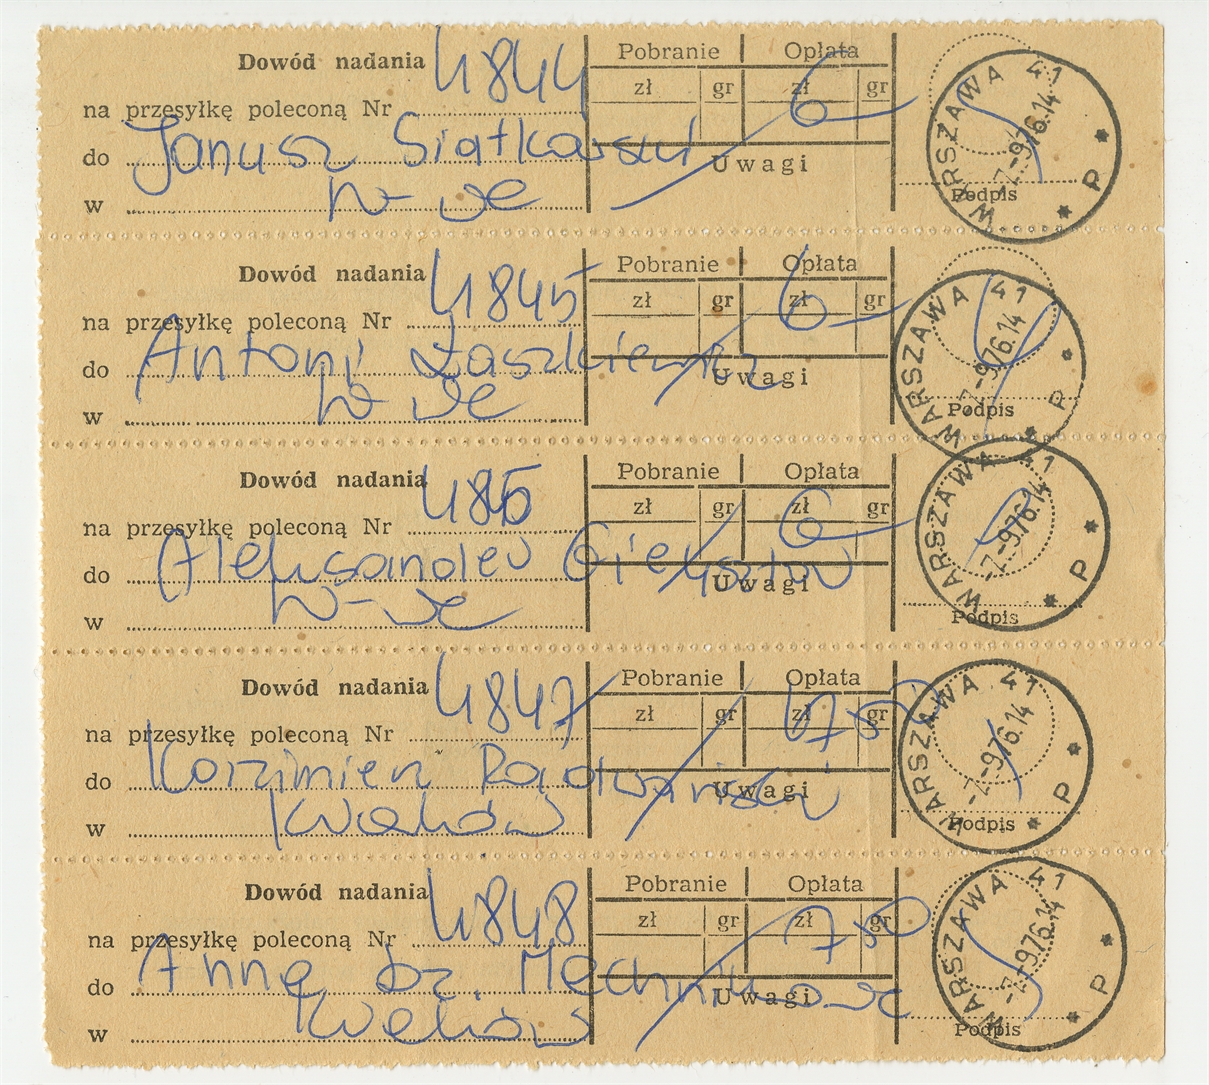 Dowód nadania 4844 Pobranie Opłata
zł gr zł gr
na przesyłkę poleconą Nr 6
do Janusz Siatkowski Uwagi
w W-we Podpis
WARSZAWA 41 -7.-976.14 * P *
Dowód nadania 4845 Pobranie Opłata
zł gr zł gr
na przesyłkę poleconą Nr 6
do Antoni Łaszkiewicz Uwagi
w W-we Podpis
WARSZAWA 41 -7.-976.14 * P *
Dowód nadania Pobranie Opłata
zł gr zł gr
na przesyłkę poleconą Nr 6
do Aleksander Gieysztor Uwagi
w W-we Podpis
WARSZAWA 41 -7.-976.14 * P *
Dowód nadania 4847 Pobranie Opłata
zł gr zł gr
na przesyłkę poleconą Nr
do Kazimierz Radwański Uwagi
w Kraków Podpis
WARSZAWA 41 -7.-976.14 * P *
Dowód nadania 4848 Pobranie Opłata
zł gr zł gr
na przesyłkę poleconą Nr 7 50
do Anna Uwagi
w Kraków Podpis
WARSZAWA 41 -7.-976.14 * P *